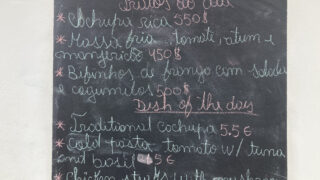 Pratos do dia
* Cachupa rica 550$
* Massa fria, tomate, atum e
manjericão 450$
* Bifinhos de frango com salada
e cogumelos 500$
Dish of the day
* Traditional cachupa 5.5€
* Cold pasta tomato w/ tuna
and basil 5€
* Chicken steaks with mushroom